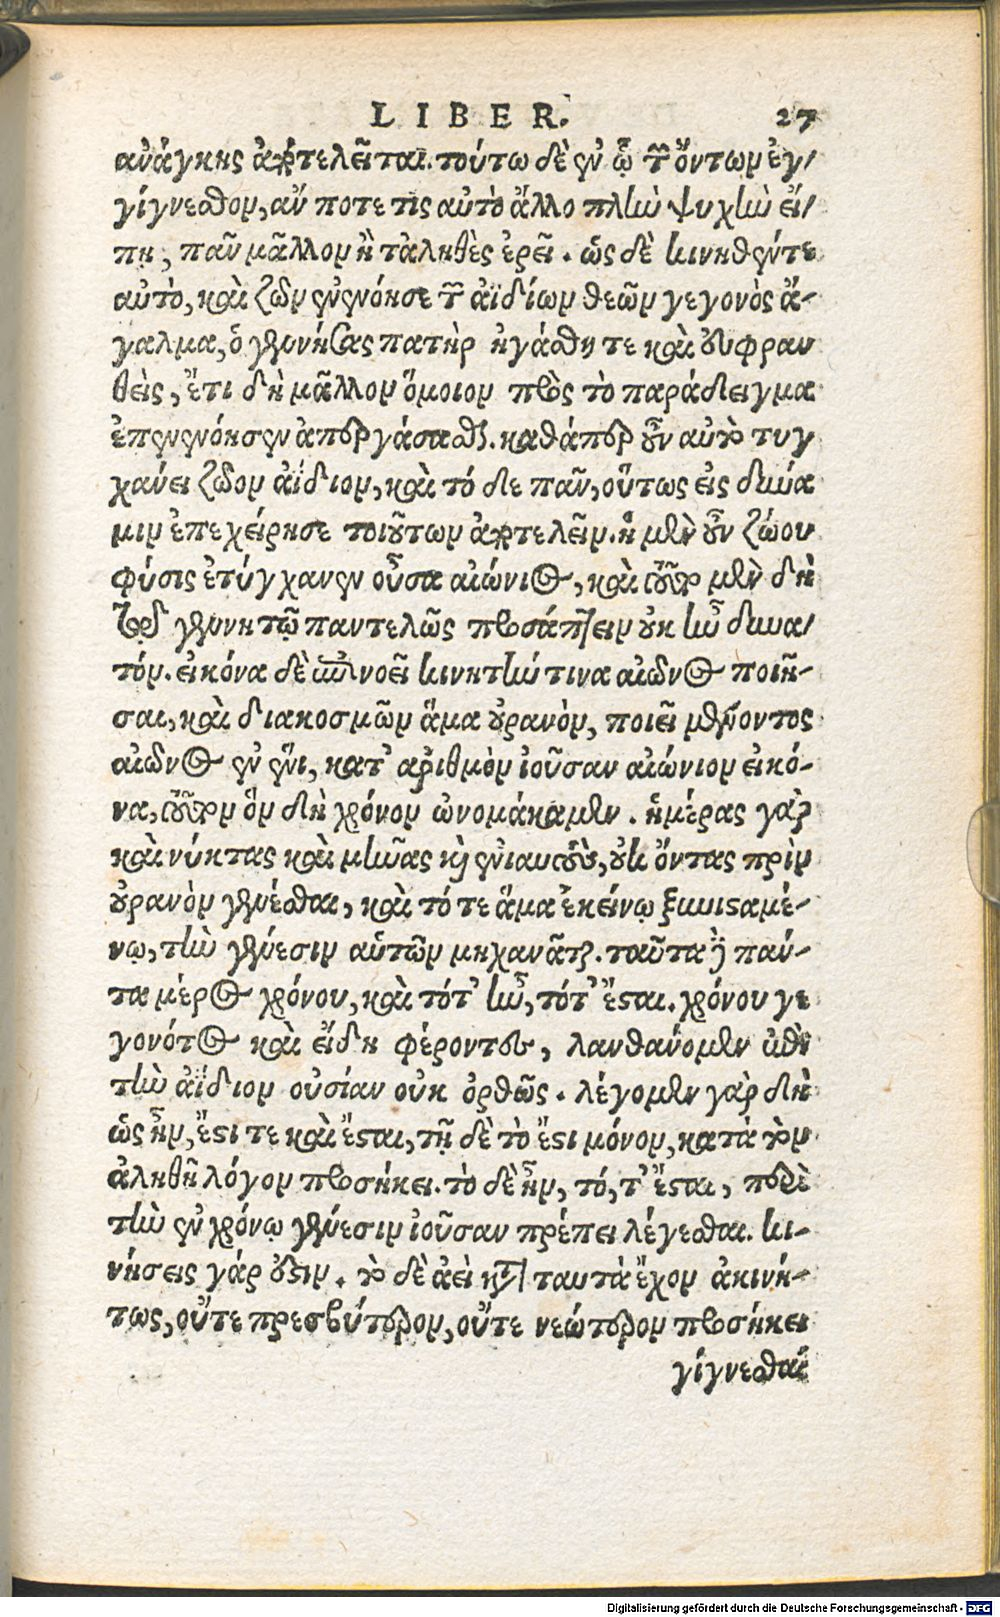 LIBER. 27
ανάγκης ἀποτελεῖται. τούτω δὲ ἐν ᾧ τῶν ὄντων ἐγ/
γίγνεσθον, ἄν ποτε τις αὐτὸ ἄλλο πλὴν ψυχὴν εἴ/
πῃ, πᾶν μᾶλλον ἢ τἀληθὲς ἐρεῖ. ὡς δὲ κινηθέντε
αὐτὸ, καὶ ζῶν ἐνενόησε τῶν ἀϊδίων θεῶν γεγονὸς ἄ-
γαλμα, ὁ γεννήσας πατὴρ ἠγάσθη τε καὶ ευφραν
θεὶς, ἔτι δὴ μᾶλλον ὅμοιον πρὸς τὸ παράδειγμα
ἐπενενόησεν ἀπεργάσασθαι. καθάπερ οὖν αὐτὸ τυγ
χάνει ζῶον ἀΐδιον, καὶ τό δε πᾶν, οὕτως εἰς δύνα
μιν ἐπεχείρησε τοιοῦτων ἀποτελεῖν. ἡ μὲν οὖν ζώου
φύσις ἐτύγχανεν οὖσα αἰώνιος, καὶ τοῦτο μὲν δὴ
τῷδε γεννητῷ παντελῶς προσάπτειν οὐκ ἦν δυνα/
τόν. εἰκόνα δὲ ἐπινοεῖ κινητήν τινα αἰῶνος ποιῆ-
σαι, καὶ διακοσμῶν ἅμα οὐρανὸν, ποιεῖ μένοντος
αἰῶνος ἐν ἑνὶ, κατ' αριθμὸν ἰοῦσαν αἰώνιον εἰκό-
να, τοῦτον ὃν δὴ χρόνον ὠνομάκαμεν. ἡμέρας γὰρ
καὶ νύκτας καὶ μῆνας καὶ ἐνιαυτοὺς, οὐκ ὄντας πρὶν
οὐρανὸν γενέσθαι, καὶ τό τε ἅμα ἐκείνῳ ξυνισταμέ-
νῳ, τὴν γένεσιν αὐτῶν μηχανᾶται. ταῦτα δὲ πάν-
τα μέρος χρόνου, καὶ τότ' ἦν, τότ' ἔσται. χρόνου γε
γονότος καὶ εἴδη φέροντες, λανθάνομεν ἐπὶ
τὴν ἀΐδιον οὐσίαν οὐκ ὀρθῶς. λέγομεν γὰρ δὴ
ὡς ἦν, ἔστι τε καὶ ἔσται, τῇ δὲ τὸ ἔστι μόνον, κατὰ τὸν
ἀληθῆ λόγον προσήκει. τὸ δὲ ἦν, τό, τ' ἔσται, περὶ
τὴν ἐν χρόνῳ γένεσιν ἰοῦσαν πρέπει λέγεσθαι. κι-
νήσεις γάρ ἐστιν. τὸ δὲ ἀεὶ κατὰ ταυτὰ ἔχον ἀκινή-
τως, οὔτε πρεσβύτερον, οὔτε νεώτερον προσήκει
γίγνεσθαί
Digitalisierung gefördert durch die Deutsche Forschungsgemeinschaft - DFG